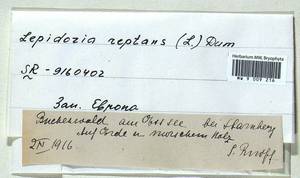 Herbarium MW, Bryophyta
MW 9 009 216
Lepidozia reptans (L.) Dum
SR - 9160402
Зап. Европа
Buchenwald am See bei Starnberg
Auf Erde u morschem Holz
1916